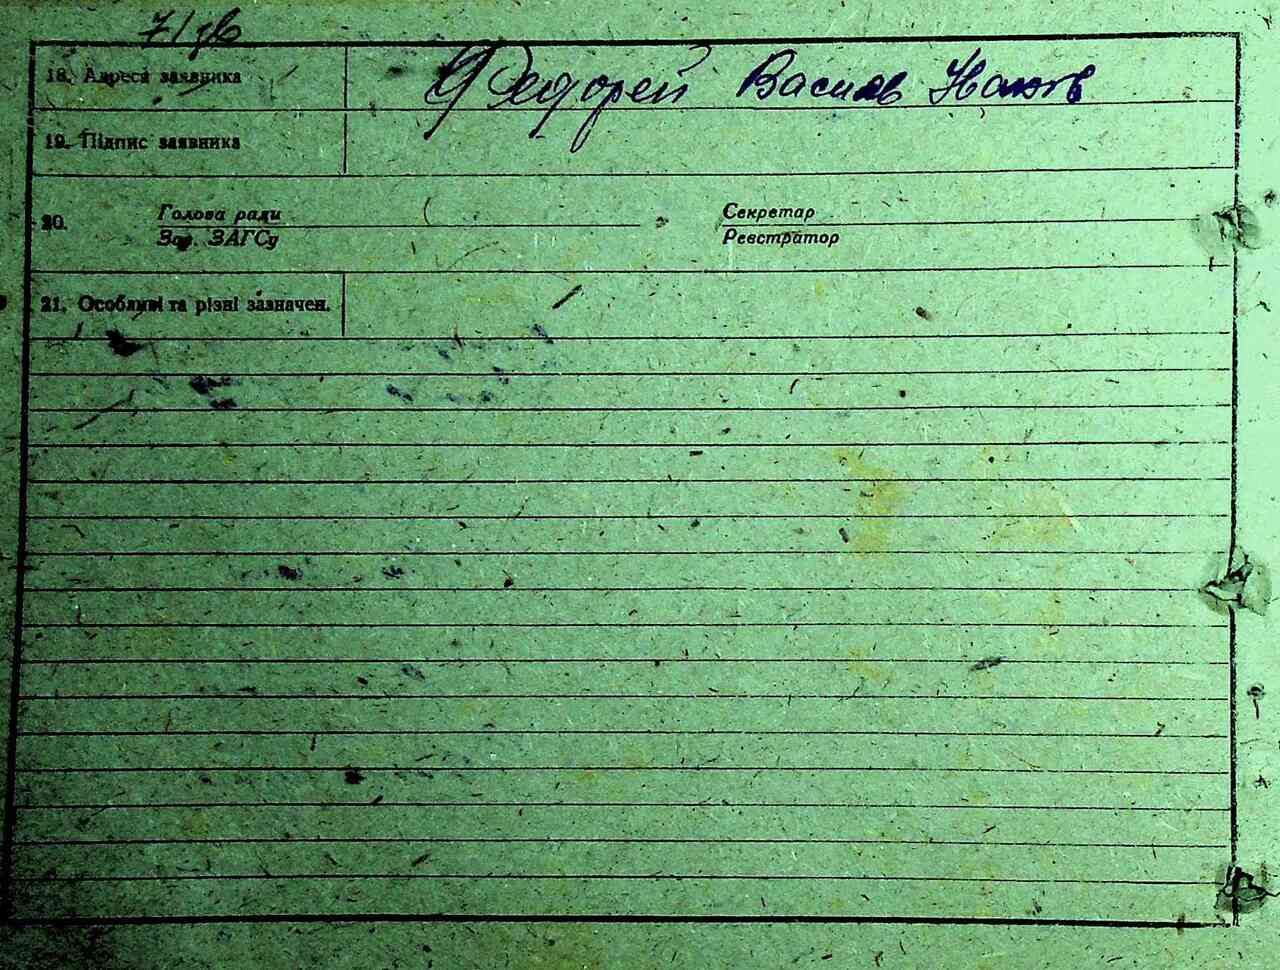 18. Адреса заявника Федорей Василь
19. Підпис заявника
20. Голова ради Секретар
Зав. ЗАГСу Реєстратор
21. Особливі та різні зазначен.